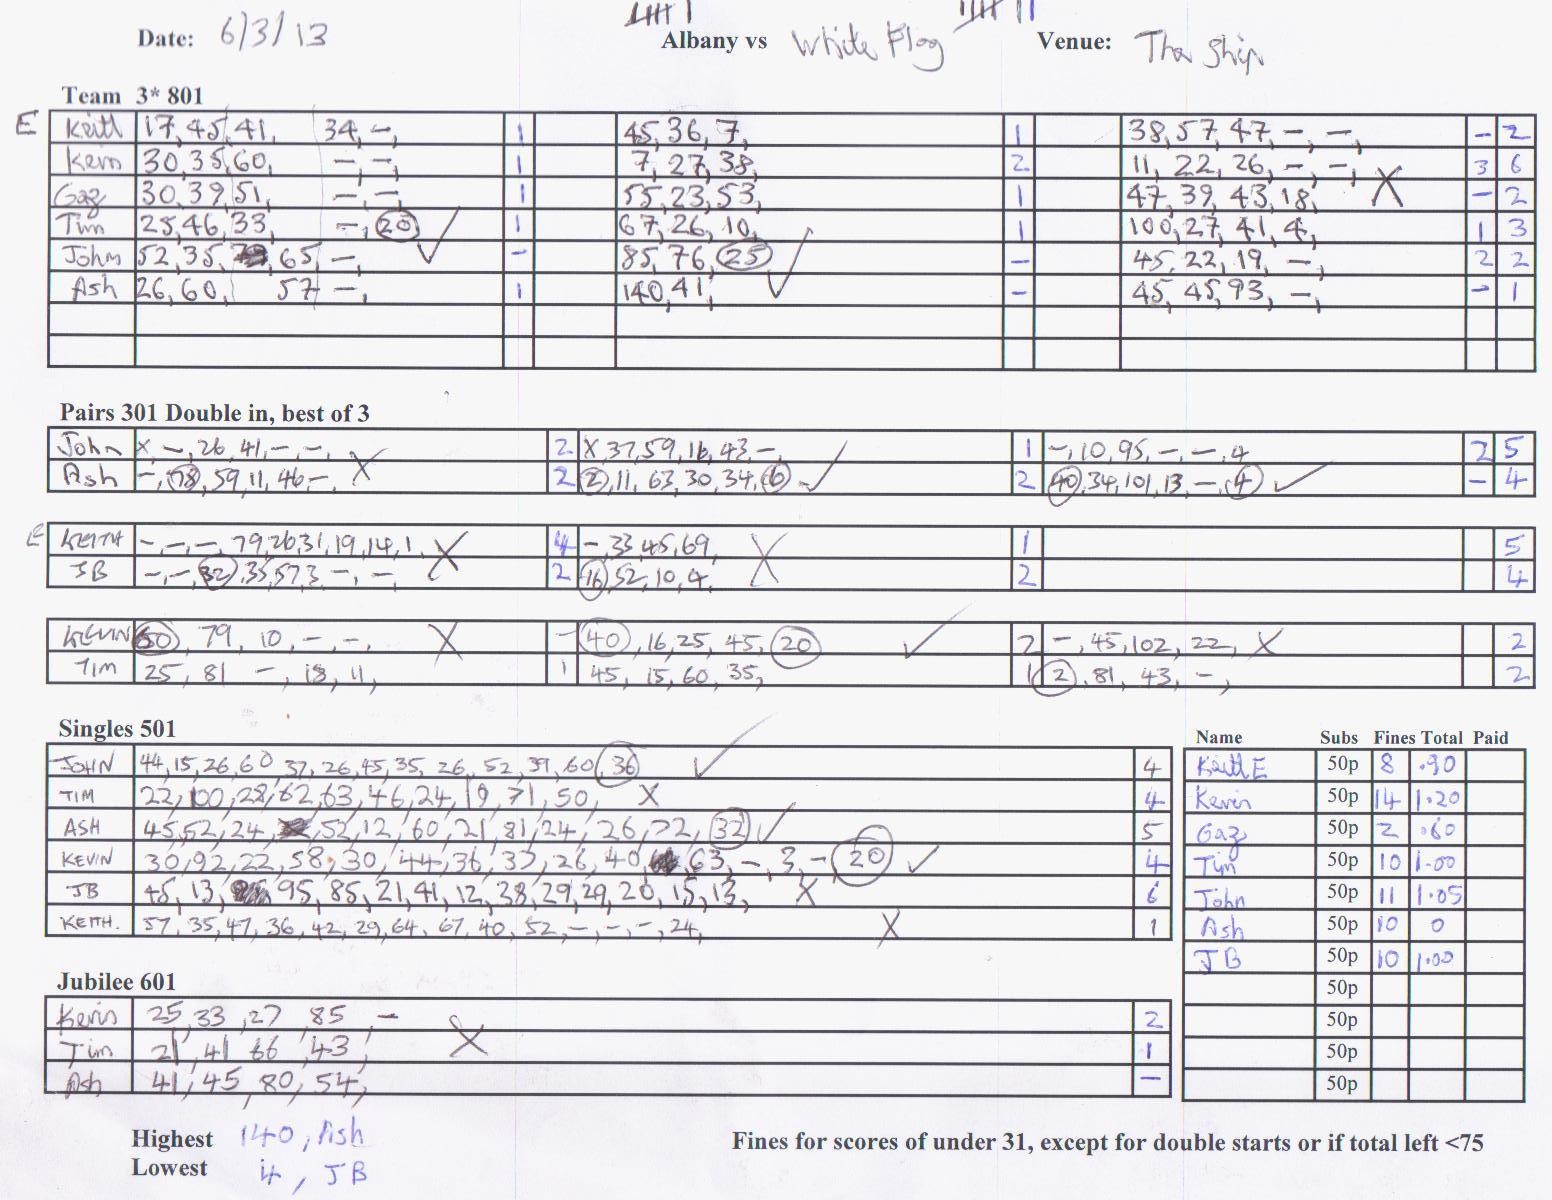 Date: 6/3/13 Albany vs White Flag Venue: The Ship
Team 3* 801
E Keith 17, 45, 41, 34, -, 1 45, 36, 7, 1 38, 57, 47, -, -, - 2
Kevin 30, 35, 60, -, -, 1 7, 27, 38, 2 11, 22, 26, -, -, X 3 6
Gaz 30, 39, 51, -, -, 1 55, 23, 53, 1 47, 39, 43, 18, - 2
Tim 25, 46, 33, -, 20 ✓ 1 67, 26, 10, 1 100, 27, 41, 4, 1 3
John 52, 35, 65, -, - 85, 76, 25 ✓ - 45, 22, 19, -, 2 2
Ash 26, 60, 57 -, 1 140, 41, - 45, 45, 93, -, - 1
Pairs 301 Double in, best of 3
John x, -, 26, 41, -, -, 2 X, 37, 59, 16, 43, -, 1 -, 10, 95, -, -, 4 2 5
Ash -, 78, 59, 11, 46, -, X 2 2, 11, 63, 30, 34, 6 ✓ 2 40, 34, 101, 13, -, 4, ✓ - 4
E KEITH -, -, -, 79, 26, 31, 19, 14, 1, X 4 -, 33, 45, 69, X 1 5
JB -, -, 32, 35, 57, 3, -, -, 2 16, 52, 10, 4, 2 4
KEVIN 50, 79, 10, -, -, X - 40, 16, 25, 45, 20 ✓ 2 -, 45, 102, 22, X 2
TIM 25, 81 -, 13, 11, 1 45, 15, 60, 35, 1 2, 81, 43, -, 2
Singles 501
JOHN 44, 15, 26, 60, 37, 26, 45, 35, 26, 52, 39, 60, 36 ✓ 4
TIM 22, 100, 28, 62, 63, 46, 24, 19, 71, 50, X 4
ASH 45, 52, 24, 52, 12, 60, 21, 81, 24, 26, 72, 32 ✓ 5
KEVIN 30, 92, 22, 58, 30, 44, 36, 33, 26, 40, 63, -, 3, - 20 ✓ 4
JB 45, 13, 95, 85, 21, 41, 12, 38, 29, 29, 20, 15, 13, X 6
KEITH. 57, 35, 47, 36, 42, 29, 64, 67, 40, 52, -, -, -, 24, X 1
Name Subs Fines Total Paid
Keith E 50p 8 .90
Kevin 50p 14 1.20
Gaz 50p 2 .60
Tim 50p 10 1.00
John 50p 11 1.05
Ash 50p 10 0
JB 50p 10 1.00
50p
50p
50p
50p
Jubilee 601
Kevin 25, 33, 27 85, - 2
Tim 21, 41 66, 43, X 1
Ash 41, 45, 80, 54, -
Highest 140, Ash
Lowest 4, JB
Fines for scores of under 31, except for double starts or if total left <75